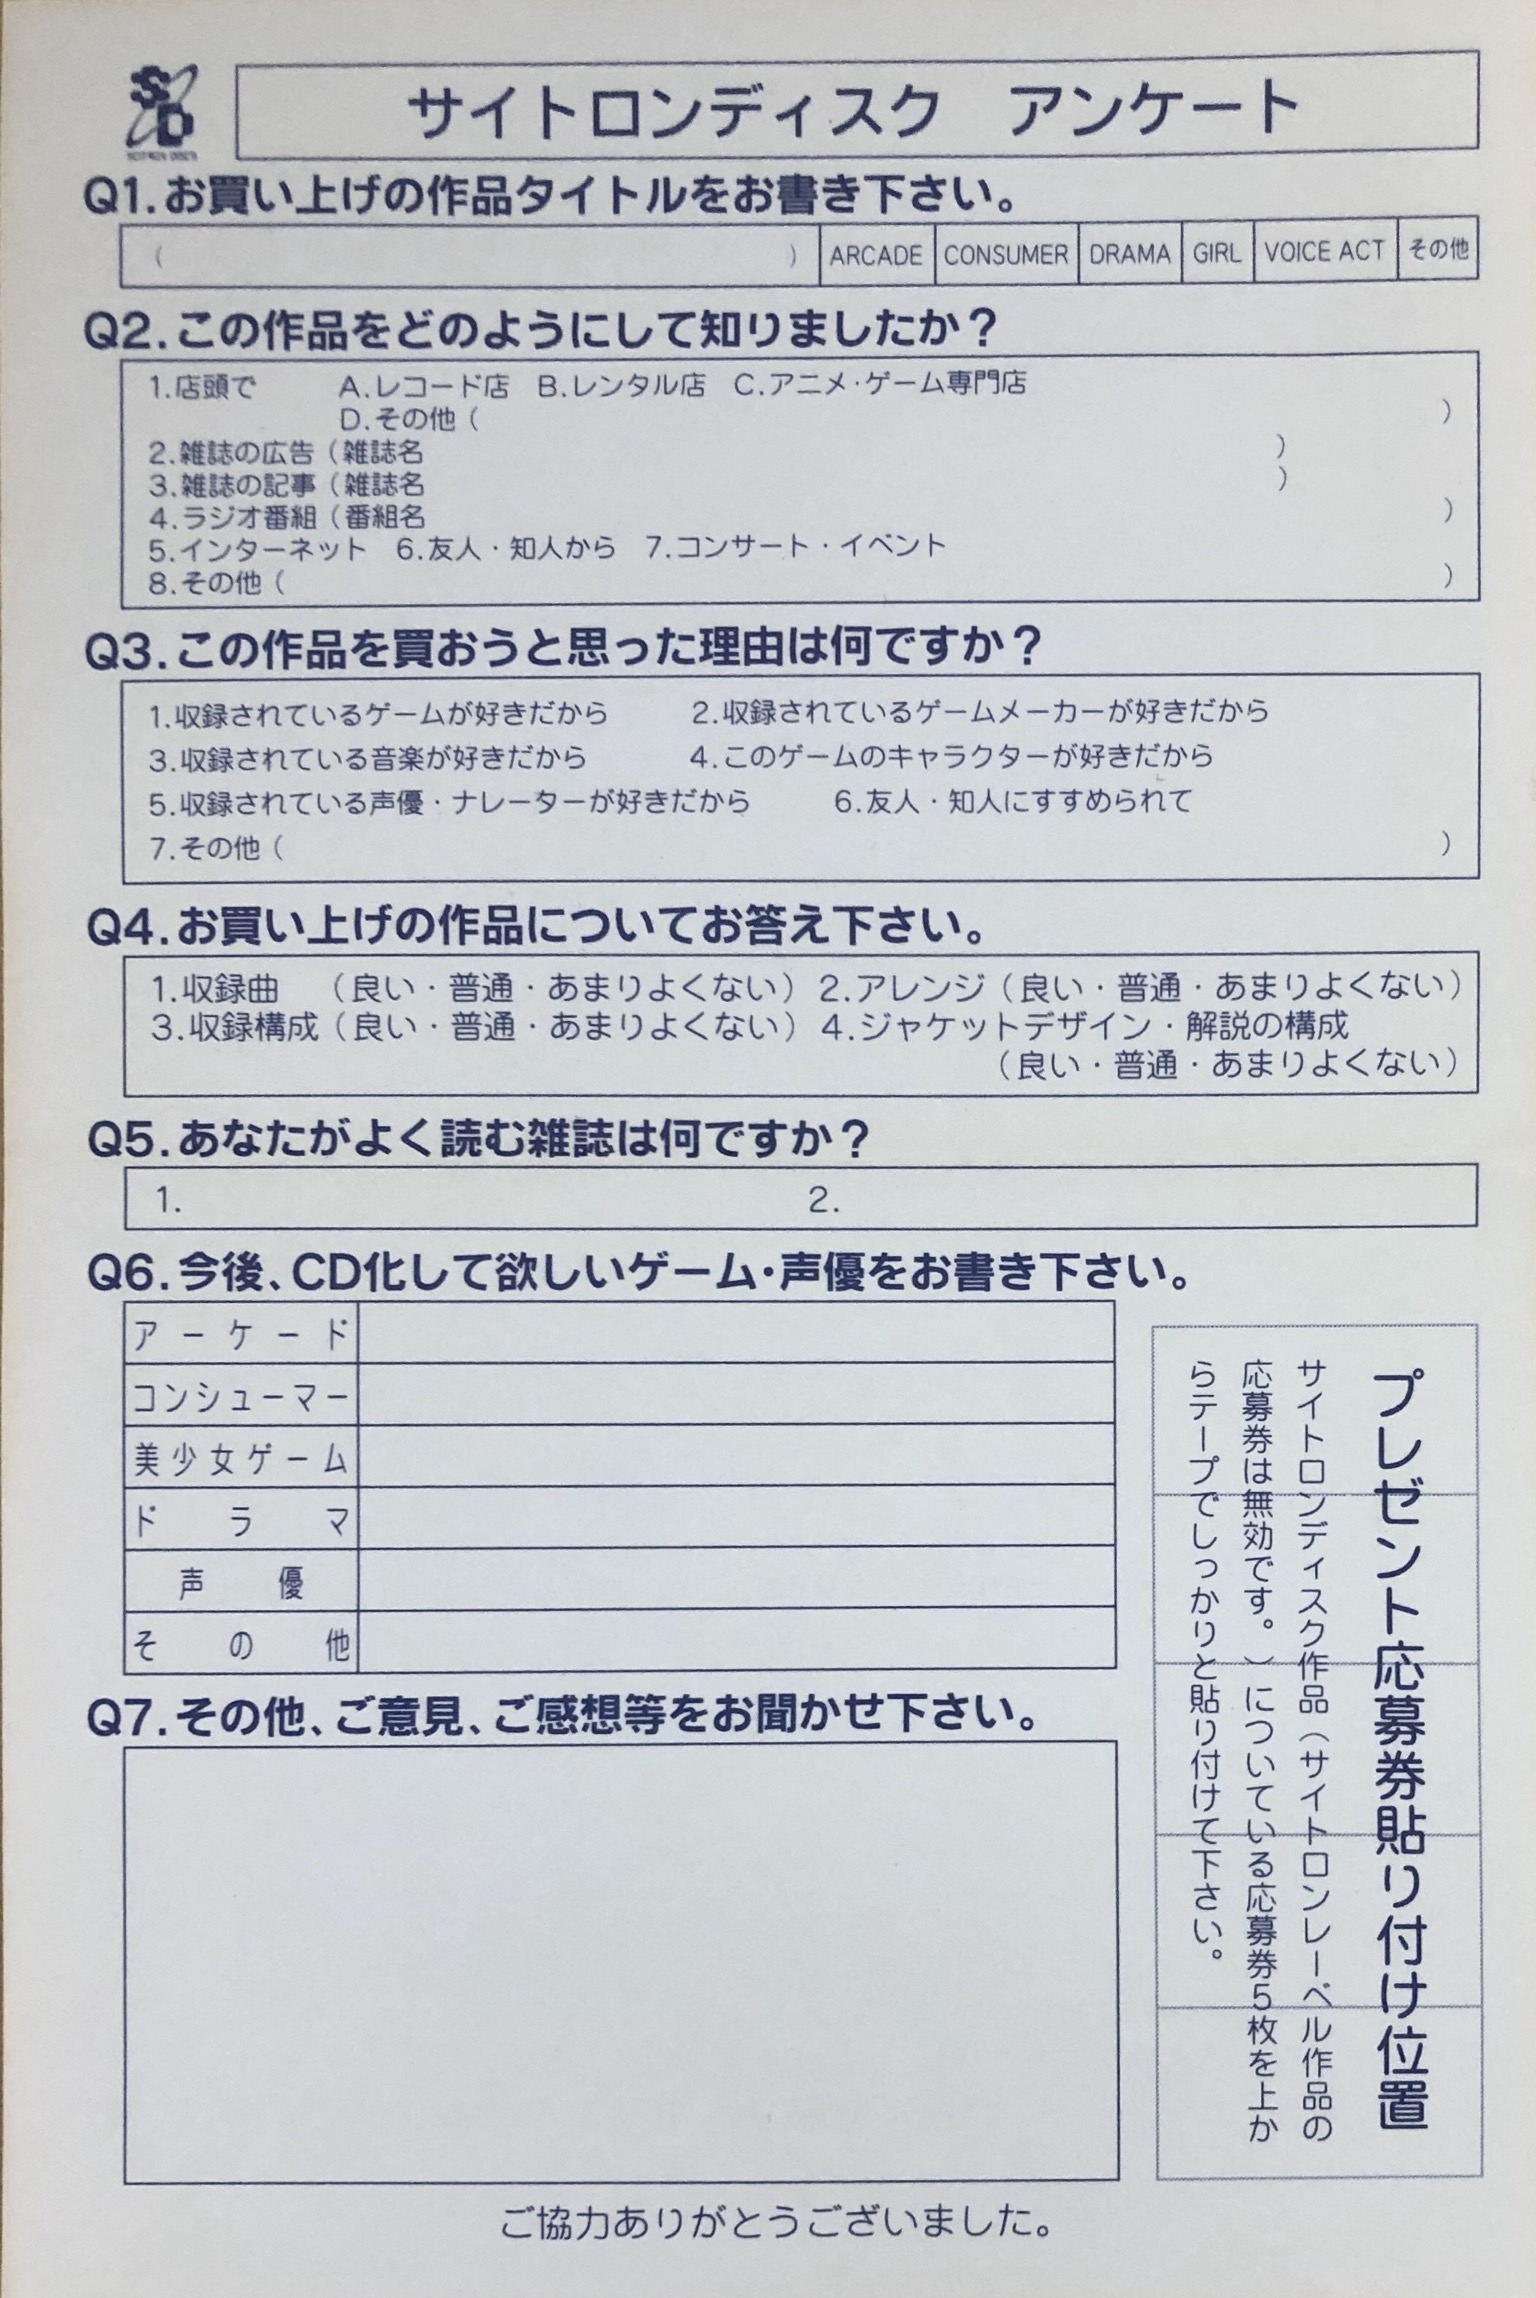 SD
サイトロンディスク　アンケート
Q1.お買い上げの作品タイトルをお書き下さい。
（　　　　　）ARCADE CONSUMER DRAMA GIRL VOICE ACT その他
Q2.この作品をどのようにして知りましたか？
1.店頭で　A.レコード店　B.レンタル店　C.アニメ・ゲーム専門店
D.その他（　　　　　）
2.雑誌の広告（雑誌名　　　　　）
3.雑誌の記事（雑誌名　　　　　）
4.ラジオ番組（番組名　　　　　）
5.インターネット　6.友人・知人から　7.コンサート・イベント
8.その他（　　　　　）
Q3.この作品を買おうと思った理由は何ですか？
1.収録されているゲームが好きだから　2.収録されているゲームメーカーが好きだから
3.収録されている音楽が好きだから　4.このゲームのキャラクターが好きだから
5.収録されている声優・ナレーターが好きだから　6.友人・知人にすすめられて
7.その他（　　　　　）
Q4.お買い上げの作品についてお答え下さい。
1.収録曲　（良い・普通・あまりよくない）2.アレンジ（良い・普通・あまりよくない）
3.収録構成（良い・普通・あまりよくない）4.ジャケットデザイン・解説の構成
（良い・普通・あまりよくない）
Q5.あなたがよく読む雑誌は何ですか？
1.　　　　　2.
Q6.今後、CD化して欲しいゲーム・声優をお書き下さい。
アーケード
コンシューマー
美少女ゲーム
ドラマ
声優
その他
プレゼント応募券貼り付け位置
サイトロンディスク作品（サイトロンレーベル作品の
応募券は無効です。）についている応募券5枚を上か
らテープでしっかりと貼り付けて下さい。
Q7.その他、ご意見、ご感想等をお聞かせ下さい。
ご協力ありがとうございました。